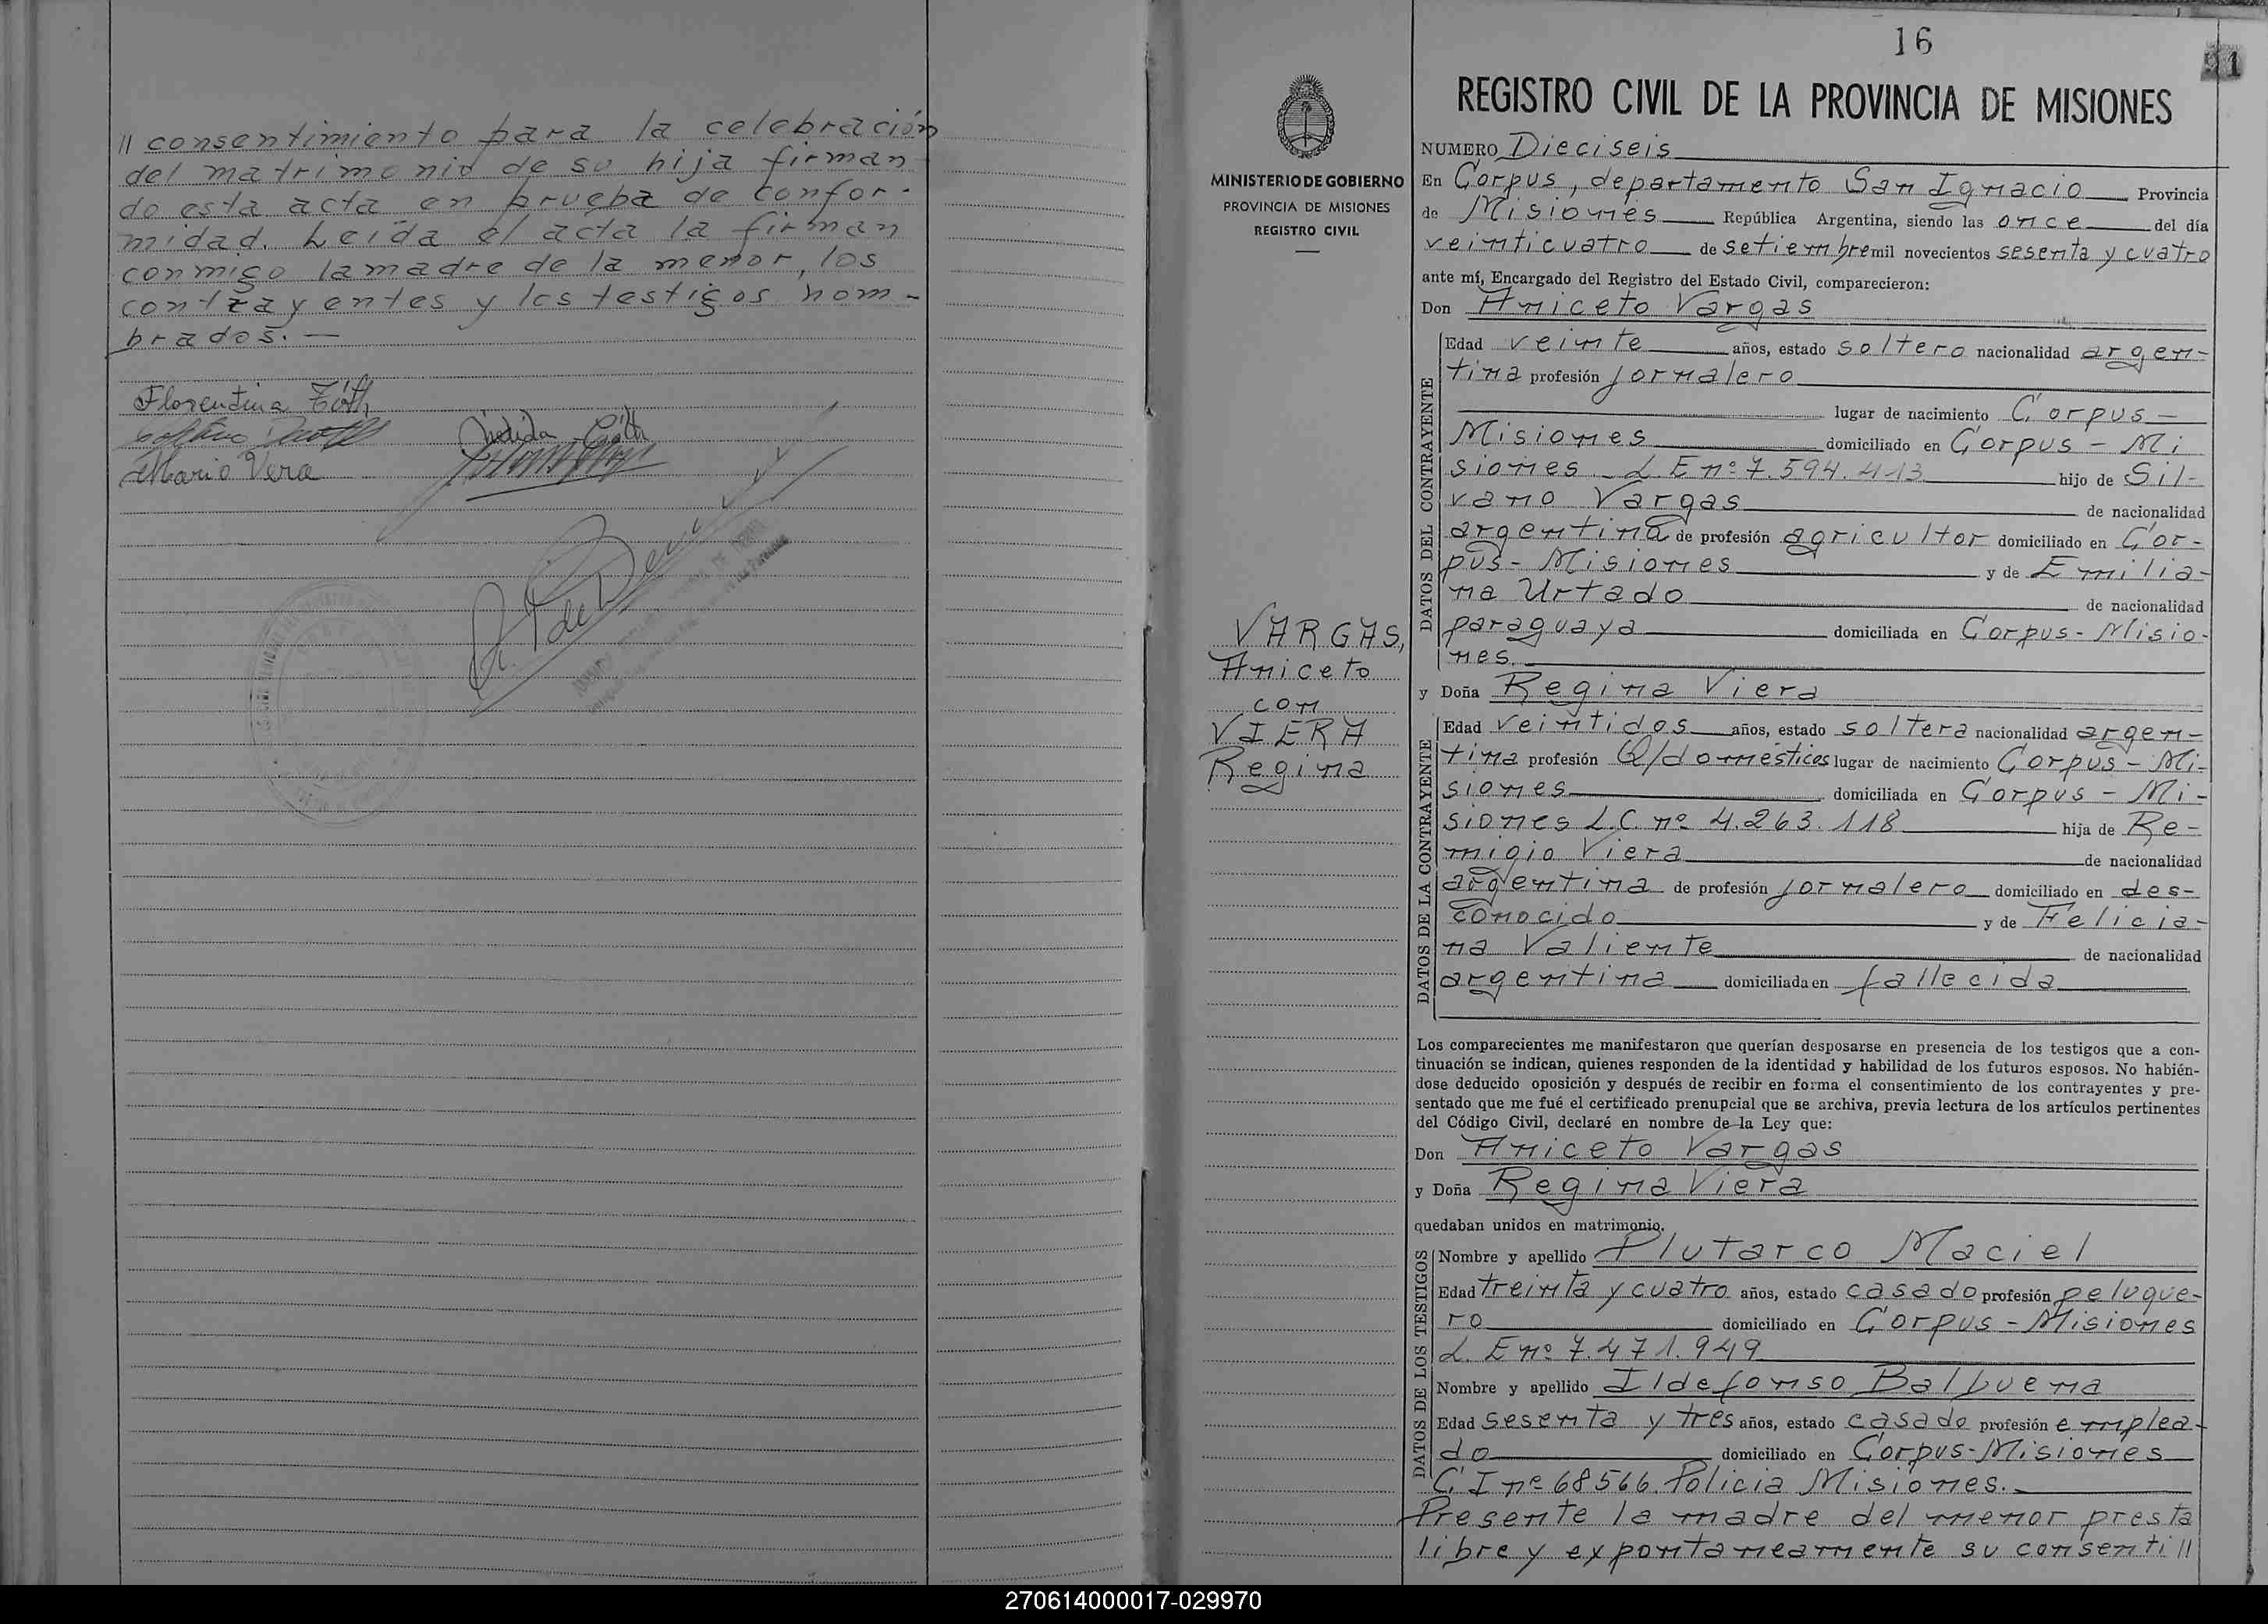 // consentimiento para la celebración
del matrimonio de su hija firman
do esta acta en prueba de confor-
midad. Leida el acta la firman
conmigo la madre de la menor, los
contrayentes y los testigos nom-
brados. —
Florentina Tóth
Nélida Tóth
Mario Vera
16
1
REGISTRO CIVIL DE LA PROVINCIA DE MISIONES
MINISTERIO DE GOBIERNO
PROVINCIA DE MISIONES
REGISTRO CIVIL
VARGAS,
Aniceto
con
VIERA
Regina
NUMERO Dieciseis
En Corpus, departamento San Ignacio Provincia
de Misiones República Argentina, siendo las once del día
veinticuatro de setiembre mil novecientos sesenta y cuatro
ante mí, Encargado del Registro del Estado Civil, comparecieron:
Don Aniceto Vargas
DATOS DEL CONTRAYENTE
Edad veinte años, estado soltero nacionalidad argen-
tina profesión jornalero
lugar de nacimiento Corpus-
Misiones domiciliado en Corpus - Mi
siones - L. E nº 7.594.413 hijo de Sil-
vano Vargas de nacionalidad
argentina de profesión agricultor domiciliado en Cor-
pus - Misiones y de Emilia-
na Urtado de nacionalidad
paraguaya domiciliada en Corpus - Misio-
nes.
y Doña Regina Viera
DATOS DE LA CONTRAYENTE
Edad veintidos años, estado soltera nacionalidad argen-
tina profesión Q/domésticos lugar de nacimiento Corpus - Mi-
siones domiciliada en Corpus - Mi-
siones L.C. nº 4.263.118 hija de Re-
migio Viera de nacionalidad
argentina de profesión jornalero domiciliado en des-
conocido y de Felicia-
na Valiente de nacionalidad
argentina domiciliada en fallecida
Los comparecientes me manifestaron que querían desposarse en presencia de los testigos que a con-
tinuación se indican, quienes responden de la identidad y habilidad de los futuros esposos. No habién-
dose deducido oposición y después de recibir en forma el consentimiento de los contrayentes y pre-
sentado que me fué el certificado prenupcial que se archiva, previa lectura de los artículos pertinentes
del Código Civil, declaré en nombre de la Ley que:
Don Aniceto Vargas
y Doña Regina Viera
quedaban unidos en matrimonio.
DATOS DE LOS TESTIGOS
Nombre y apellido Plutarco Maciel
Edad treinta y cuatro años, estado casado profesión peluque-
ro domiciliado en Corpus - Misiones
L. E nº 7.471.949
Nombre y apellido Ildefonso Balbuena
Edad sesenta y tres años, estado casado profesión emplea-
do domiciliado en Corpus - Misiones
C. I nº 68566. Policia Misiones.
Presente la madre del menor presta
libre y expontaneamente su consenti//
270614000017-029970